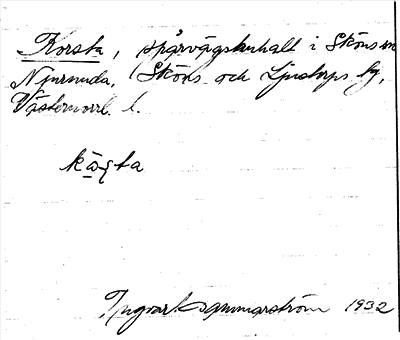 Korsta, spårvägshalt i Sköns sn
Njurunda, Sköns och Ljustorps tg,
Västernorrl. l.
Ingvar Hammarström 1932